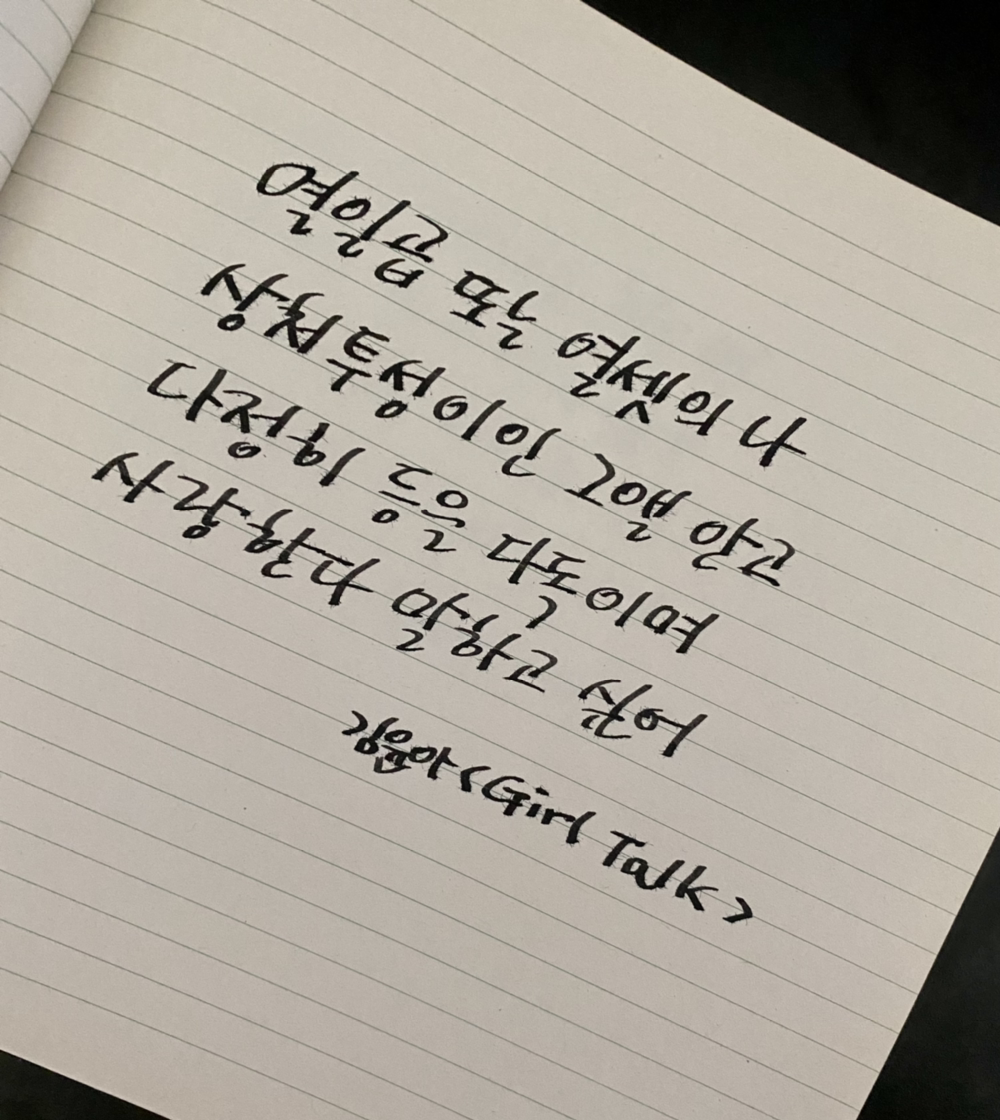 열일곱 또는 열셋의 나
상처투성이인 그앨 안고
다정히 등을 다독이며
사랑한다 말하고 싶어
김윤아 <Girl Talk>